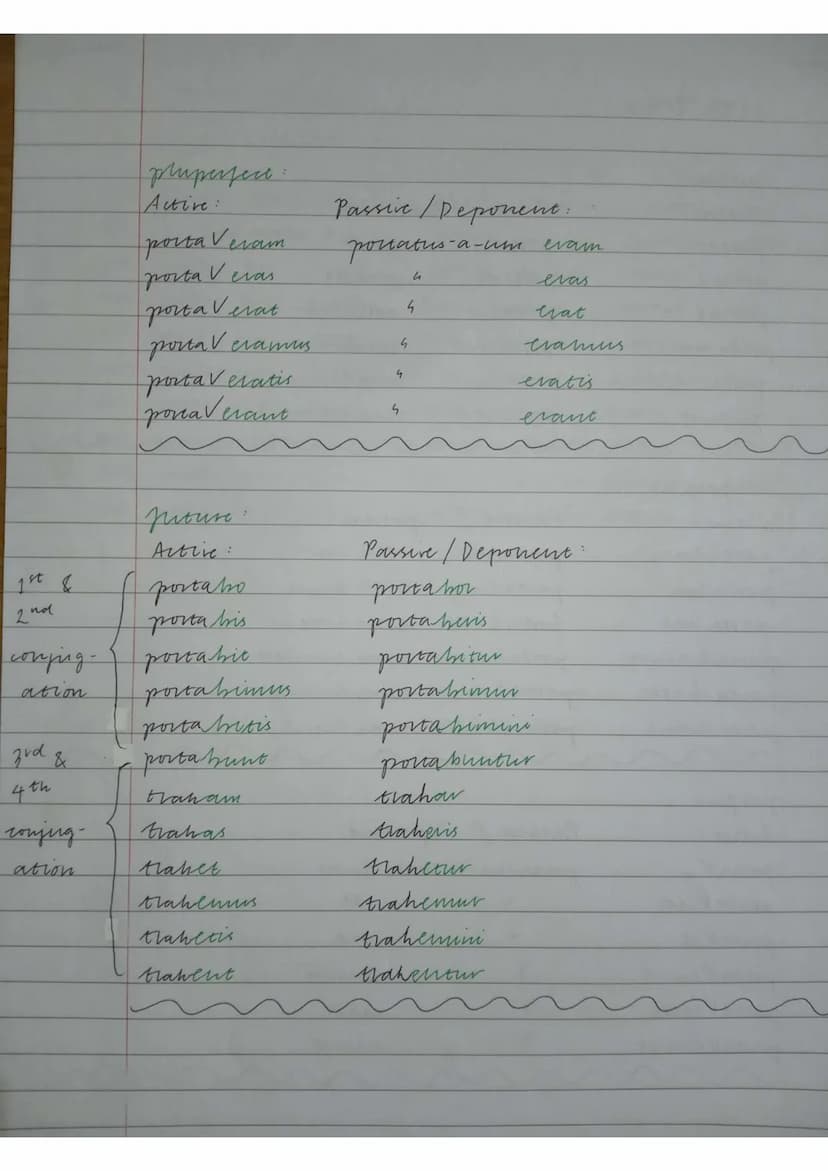 pluperfect:
Active: Passive / Deponent:
portaVeram portatus-a-um eram
portaVeras " eras
portaVerat " erat
portaVeramus " eramus
portaVeratis " eratis
portaVerant " erant
future:
Active: Passive / Deponent:
1st & portabo portabor
2nd portabis portaberis
conjug- portabit portabitur
ation portabimus portabimur
portabitis portabimini
3rd & portabunt portabuntur
4th traham trahar
conjug- trahas traheris
ation trahet trahetur
trahemus trahemur
trahetis trahemini
trahent trahentur